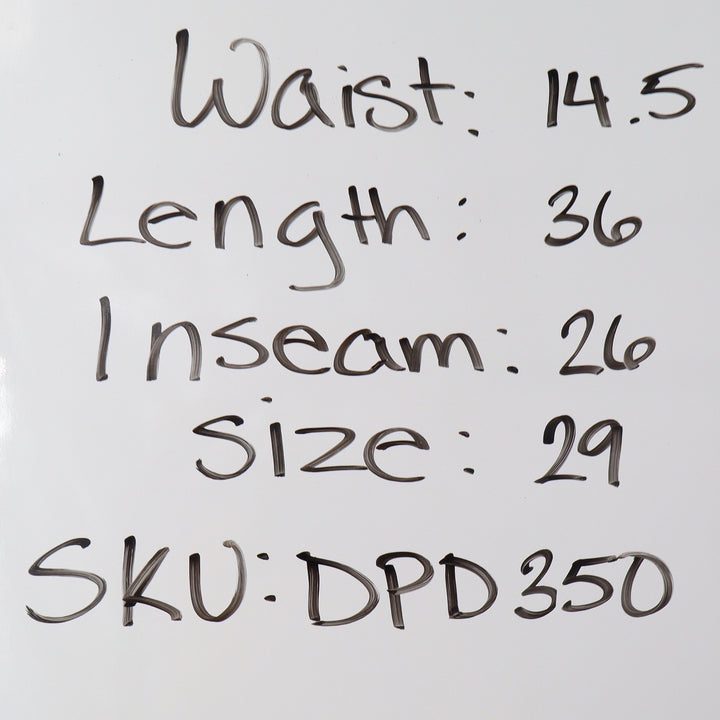 Waist: 14.5
Length: 36
Inseam: 26
Size: 29
SKU: DPD350